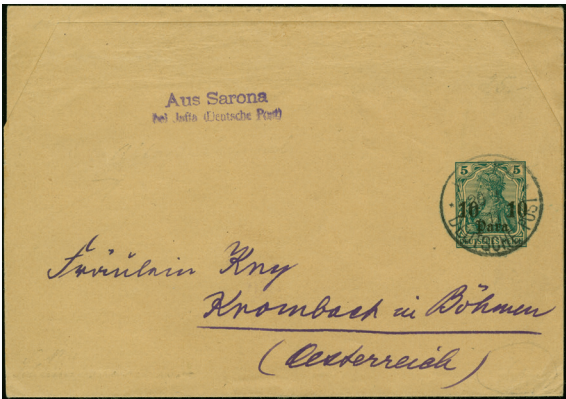 Aus Sarona
bei Jaffa (Deutsche Post)
5 5
10 10
Para
Fräulein Kny
Krombach in Böhmen
(Oesterreich)